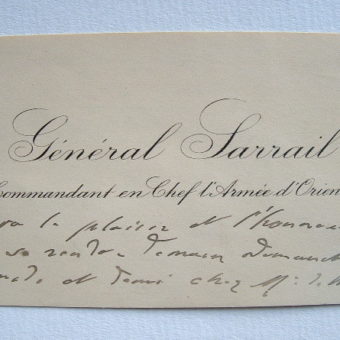 Général Sarrail
Commandant en Chef l'Armée d'Orien
le plaisir et l'honneu
se rendre demain Dimanch
et demi chez Mr